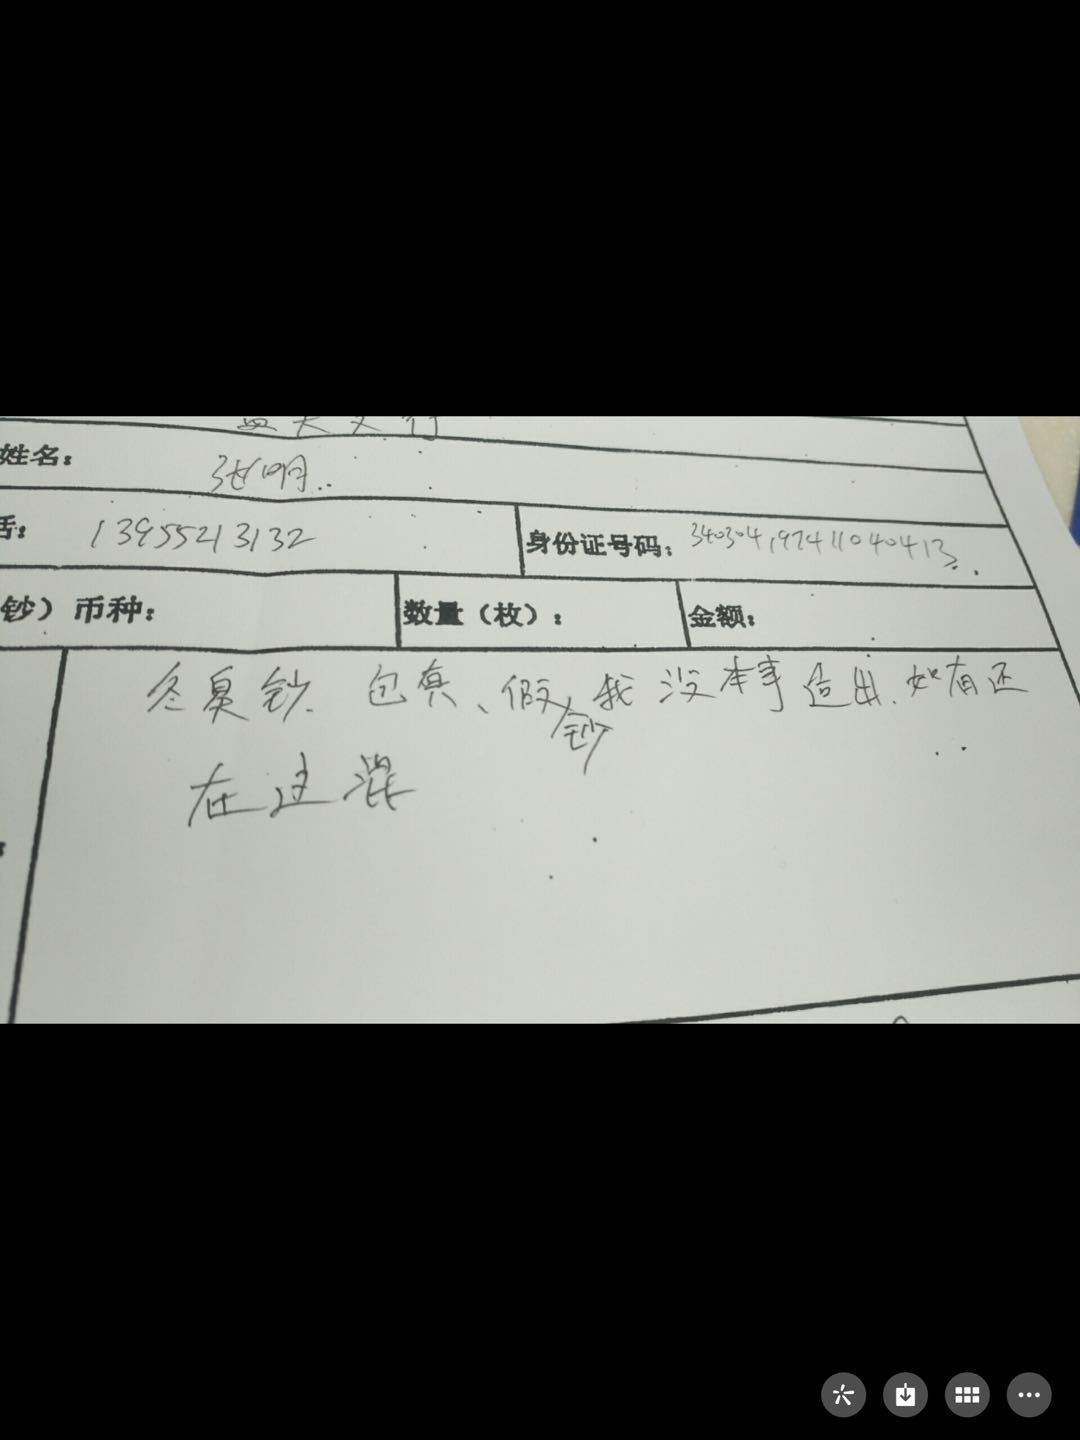 姓名： 张明
话： 13955213132 身份证号码： 340304197411040413
钞）币种： 数量（枚）： 金额：
冬奥钞. 包真、假钞，我没本事造出. 如有还
在这混